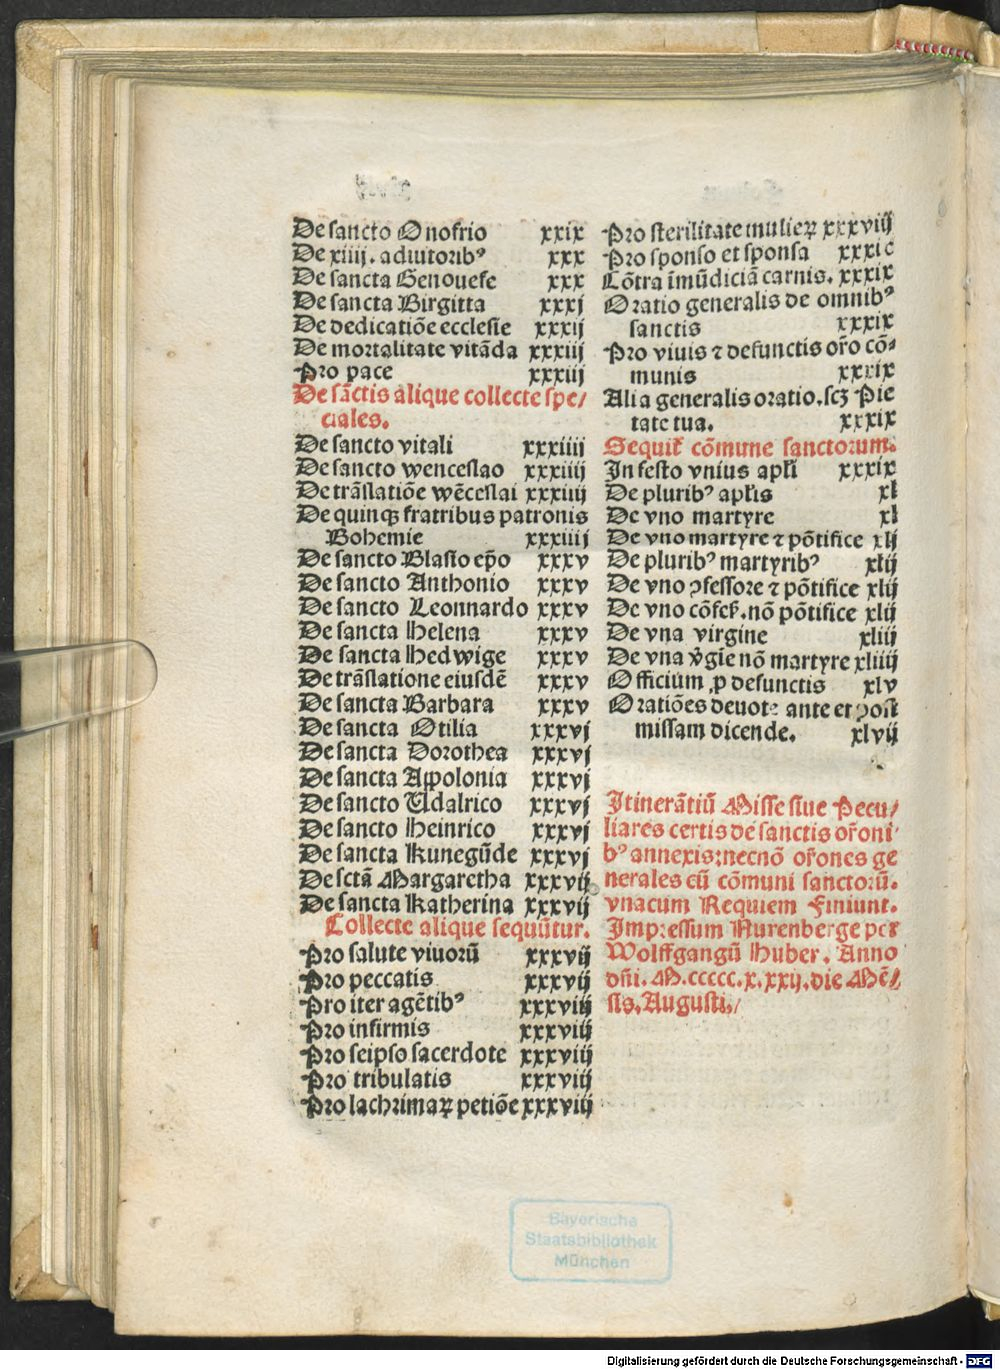 De sancto Onofrio xxix
De xiiij. adiutoribꝰ xxx
De sancta Genouefe xxx
De sancta Birgitta xxxj
De dedicatiõe ecclesie xxxij
De mortalitate vitãda xxxiij
Pro pace xxxiij
De sãctis alique collecte spe/
ciales.
De sancto vitali xxxiiij
De sancto wenceslao xxxiiij
De trãslatiõe wẽceslai xxxiiij
De quinqꝫ fratribus patronis
Bohemie xxxiiij
De sancto Blasio ep̃o xxxv
De sancto Anthonio xxxv
De sancto Leonnardo xxxv
De sancta Helena xxxv
De sancta Hedwige xxxv
De trãslatione eiusdẽ xxxv
De sancta Barbara xxxv
De sancta Otilia xxxvj
De sancta Dorothea xxxvj
De sancta Appolonia xxxvj
De sancto Udalrico xxxvj
De sancto Heinrico xxxvj
De sancta Kunegũde xxxvj
De sctã Margaretha xxxvij
De sancta Katherina xxxvij
Collecte alique sequũtur.
Pro salute viuorũ xxxvij
Pro peccatis xxxvij
Pro iter agẽtibꝰ xxxviij
Pro infirmis xxxviij
Pro seipso sacerdote xxxviij
Pro tribulatis xxxviij
Pro lachrimaꝝ petiõe xxxviij
Pro sterilitate mulieꝝ xxxviij
Pro sponso et sponsa xxxix
Cõtra ĩmũdiciã carnis. xxxix
Oratio generalis de omnibꝰ
sanctis xxxix
Pro viuis ⁊ defunctis or̃o cõ-
munis xxxix
Alia generalis oratio.scꝫ Pie
tate tua. xxxix
Sequit̃ cõmune sanctorum.
In festo vnius apl̃i xxxix
De pluribꝰ apl̃is xl
De vno martyre xl
De vno martyre ⁊ põtifice xlj
De pluribꝰ martyribꝰ xlij
De vno ꝯfessore ⁊ põtifice xlij
De vno cõfes̃. nõ põtifice xlij
De vna virgine xliij
De vna v̾gĩe nõ martyre xliiij
Officium ꝓ defunctis xlv
Oratiões deuote ante et post
missam dicende. xlvij
Itinerãtiũ Misse siue Pecu/
liares certis de sanctis or̃oni
bꝰ annexis:necnõ or̃ones ge
nerales cũ cõmuni sanctorũ.
vnacum Requiem Finiunt.
Impressum Nurenberge per
Wolffgangũ Huber. Anno
dñi. M.ccccc.x.xxij. die Mẽ/
sis, Augusti,/
Bayerische
Staatsbibliothek
München
Digitalisierung gefördert durch die Deutsche Forschungsgemeinschaft - DFG